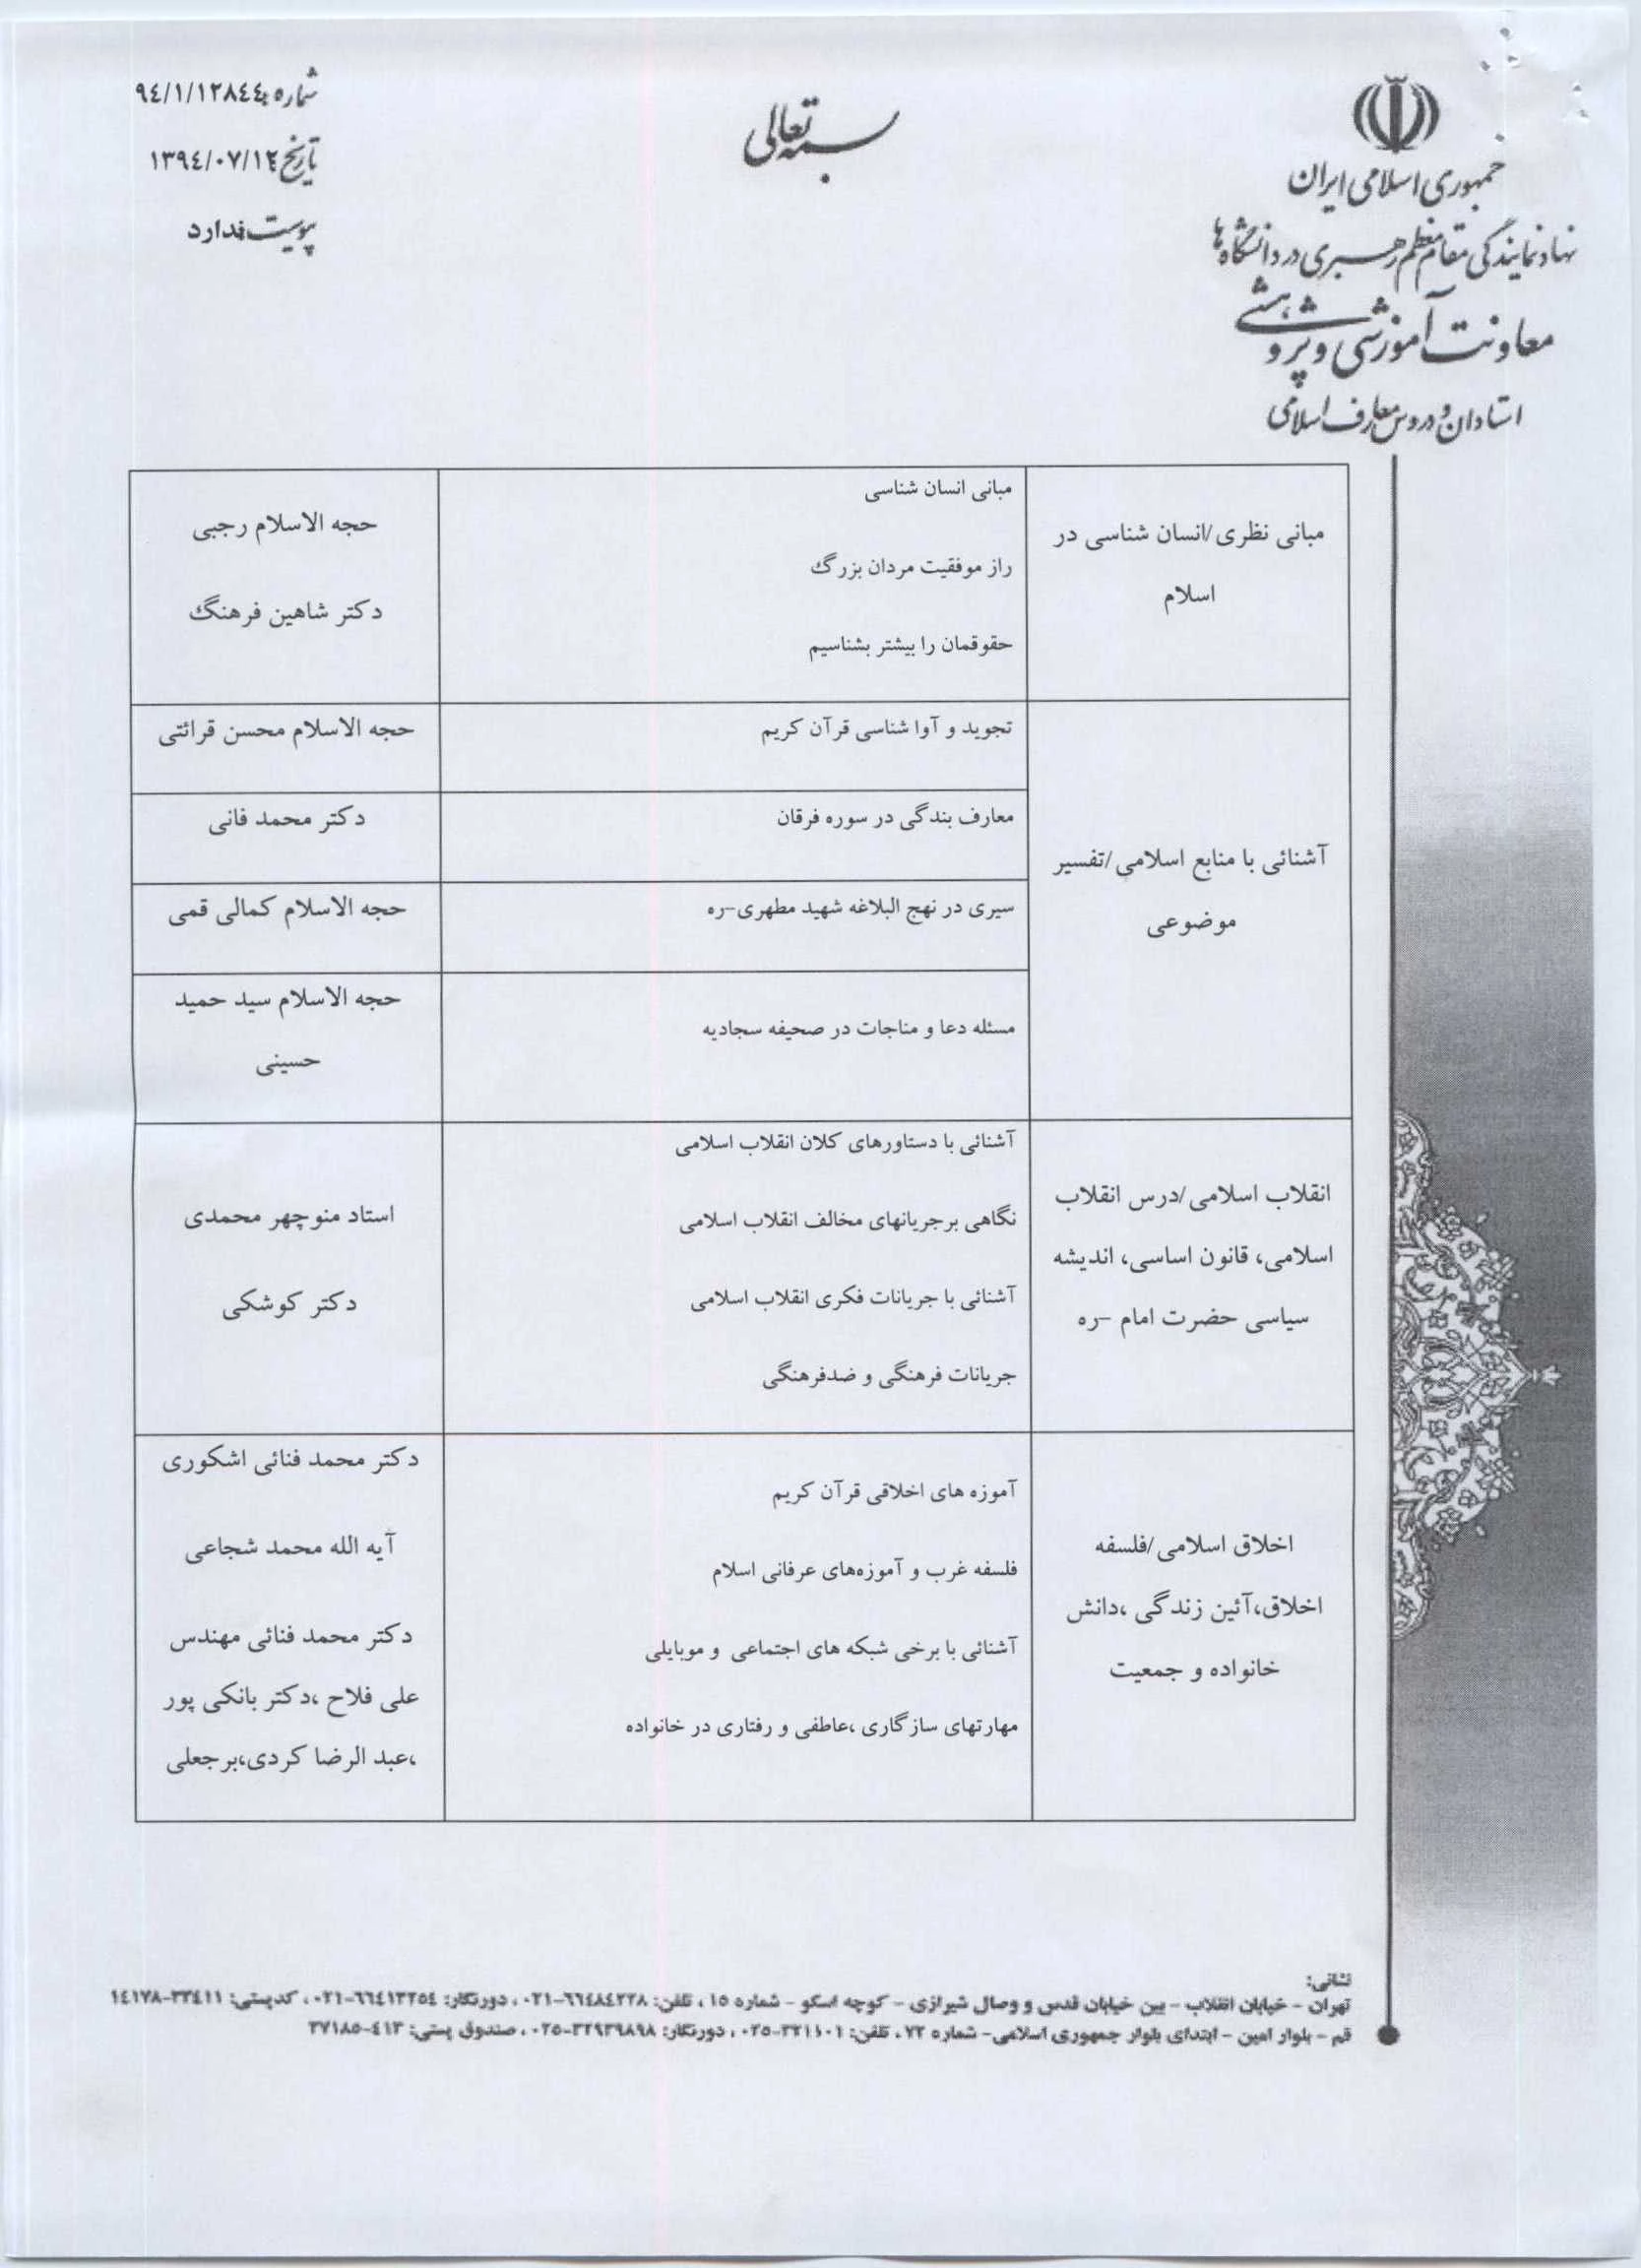 شماره: ٩٤/١/١٢٨٤٤
تاریخ: ١٣٩٤/٠٧/١٢
پیوست: ندارد
بسمه تعالی
جمهوری اسلامی ایران
نهاد نمایندگی مقام معظم رهبری در دانشگاه ها
معاونت آموزشی و پژوهشی
استادان و دروس معارف اسلامی
مبانی نظری/انسان شناسی در
اسلام
مبانی انسان شناسی
راز موفقیت مردان بزرگ
حقوقمان را بیشتر بشناسیم
حجه الاسلام رجبی
دکتر شاهین فرهنگ
آشنائی با منابع اسلامی/تفسیر
موضوعی
تجوید و آوا شناسی قرآن کریم
حجه الاسلام محسن قرائتی
معارف بندگی در سوره فرقان
دکتر محمد فانی
سیری در نهج البلاغه شهید مطهری-ره
حجه الاسلام کمالی قمی
مسئله دعا و مناجات در صحیفه سجادیه
حجه الاسلام سید حمید
حسینی
انقلاب اسلامی/درس انقلاب
اسلامی، قانون اساسی، اندیشه
سیاسی حضرت امام -ره
آشنائی با دستاورهای کلان انقلاب اسلامی
نگاهی برجریانهای مخالف انقلاب اسلامی
آشنائی با جریانات فکری انقلاب اسلامی
جریانات فرهنگی و ضدفرهنگی
استاد منوچهر محمدی
دکتر کوشکی
اخلاق اسلامی/فلسفه
اخلاق،آئین زندگی ،دانش
خانواده و جمعیت
آموزه های اخلاقی قرآن کریم
فلسفه غرب و آموزه‌های عرفانی اسلام
آشنائی با برخی شبکه های اجتماعی و موبایلی
مهارتهای سازگاری ،عاطفی و رفتاری در خانواده
دکتر محمد فنائی اشکوری
آیه الله محمد شجاعی
دکتر محمد فنائی مهندس
علی فلاح ،دکتر بانکی پور
،عبد الرضا کردی،برجعلی
نشانی:
تهران - خیابان انقلاب - بین خیابان قدس و وصال شیرازی - کوچه اسکو - شماره ١٥ ، تلفن: ٦٦٤٨٤٢٢٨-٠٢١ ، دورنگار: ٦٦٤١٣٢٥٤-٠٢١ ، کدپستی: ٣٣٤١١-١٤١٧٨
قم - بلوار امین - ابتدای بلوار جمهوری اسلامی- شماره ٧٢ ، تلفن: ٣٢١١٠١-٠٢٥ ، دورنگار: ٣٢٩٣٩٨٩٨-٠٢٥ ، صندوق پستی: ٤١٣-٣٧١٨٥